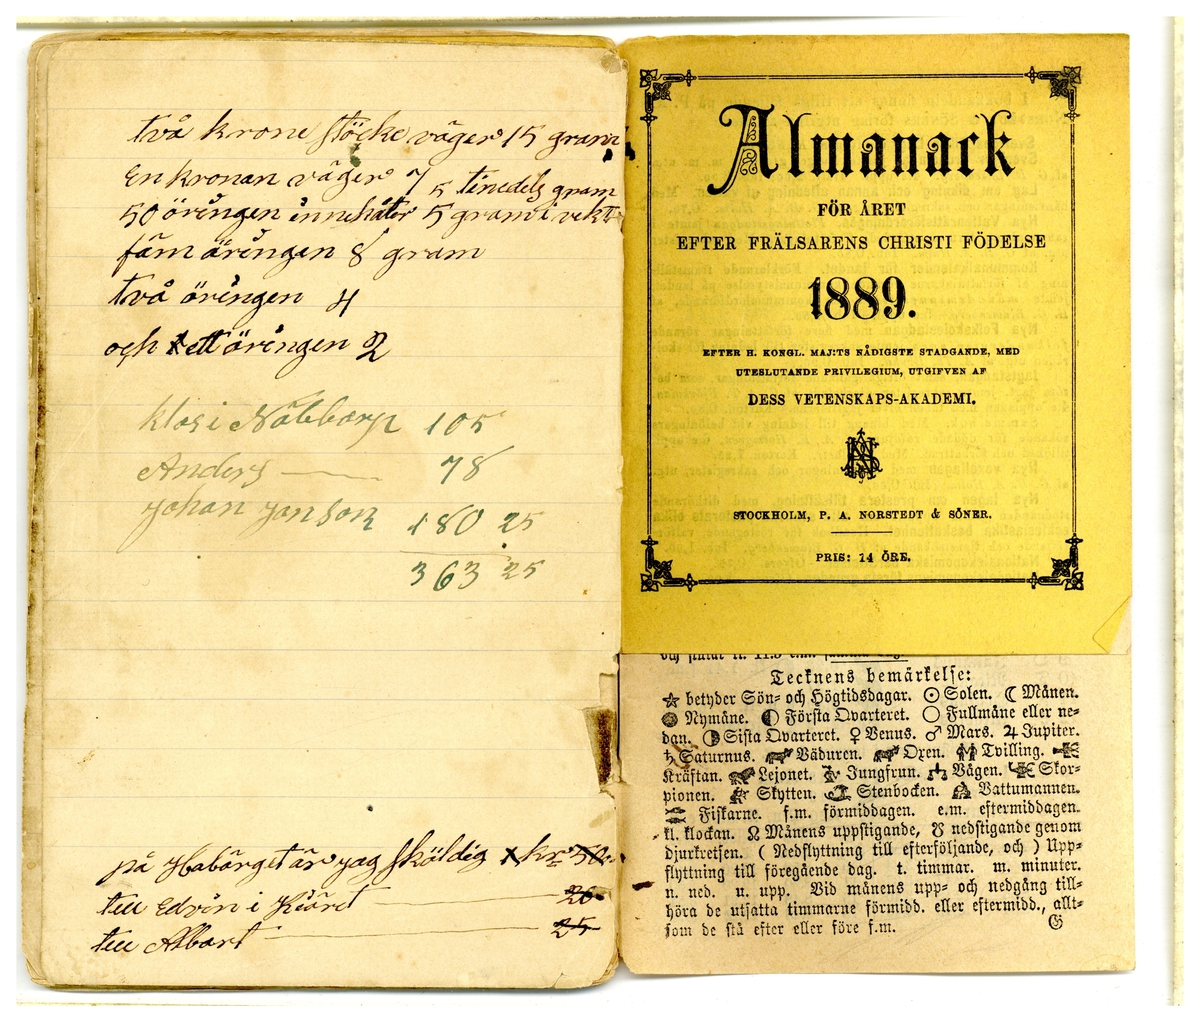 två krone stöcke väger 15 gram
En kronan väger 7 5 tinedels gram
50 öringen innehåler 5 gram i vekt
fäm öringen 8 gram
två öringen 4
och ett öringen 2
klas i Näbbarp 105
Anders — 78
Johan Janson 180 25
363 25
på Habärget är jag sköldig kr 50
till Edvin i Kiöret — 20
till Albart — 25
Almanack
FÖR ÅRET
EFTER FRÄLSARENS CHRISTI FÖDELSE
1889.
EFTER H. KONGL. MAJ:TS NÅDIGSTE STADGANDE, MED
UTESLUTANDE PRIVILEGIUM, UTGIFVEN AF
DESS VETENSKAPS-AKADEMI.
STOCKHOLM, P. A. NORSTEDT & SÖNER.
PRIS: 14 ÖRE.
Tecknens bemärkelse:
☆ betyder Sön- och Högtidsdagar. ☉ Solen. ☾ Månen.
Nymåne. Första Qvarteret. Fullmåne eller ne-
dan. Sista Qvarteret. ♀ Venus. ♂ Mars. ♃ Jupiter.
♄ Saturnus. Väduren. Oxen. Tvilling.
Kräftan. Lejonet. Jungfrun. Vågen. Skor-
pionen. Skytten. Stenbocken. Vattumannen.
Fiskarne. f.m. förmiddagen. e.m. eftermiddagen.
kl. klockan. ☊ Månens uppstigande, ☋ nedstigande genom
djurkretsen. ( Nedflyttning till efterföljande, och ) Upp-
flyttning till föregående dag. t. timmar. m. minuter.
n. ned. u. upp. Vid månens upp- och nedgång till-
höra de utsatta timmarne förmidd. eller eftermidd., allt-
som de stå efter eller före f.m.